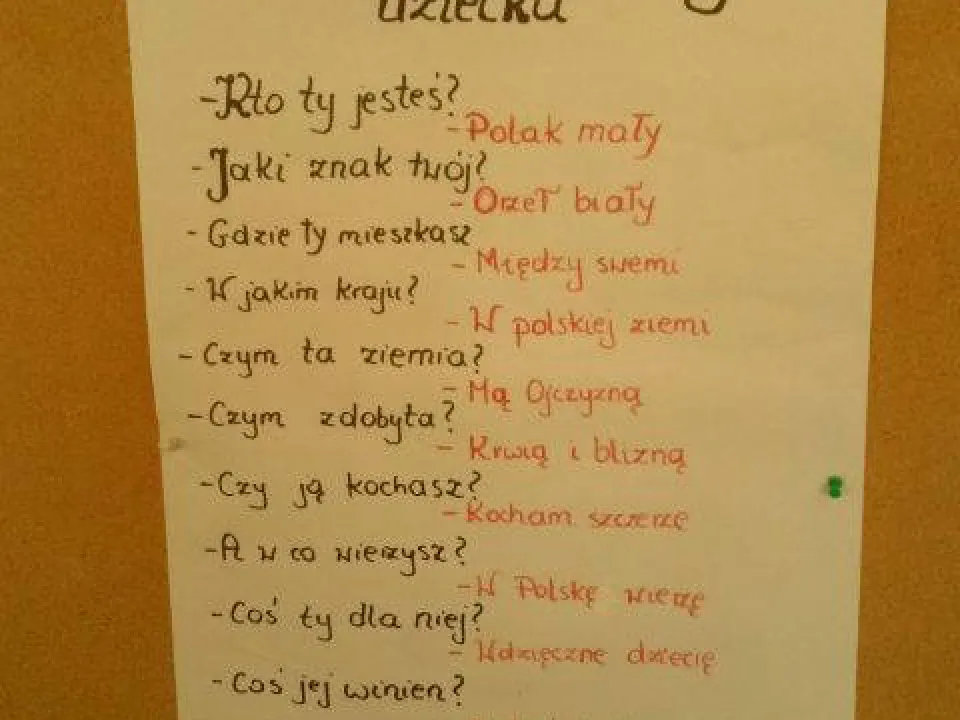 dziecka
- Kto ty jesteś?
- Polak mały
- Jaki znak twój?
- Orzeł biały
- Gdzie ty mieszkasz
- Między swemi
- W jakim kraju?
- W polskiej ziemi
- Czym ta ziemia?
- Mą Ojczyzną
- Czym zdobyta?
- Krwią i blizną
- Czy ją kochasz?
- Kocham szczerze
- A w co wierzysz?
- W Polskę wierzę
- Coś ty dla niej?
- Wdzięczne dziecię
- Coś jej winien?